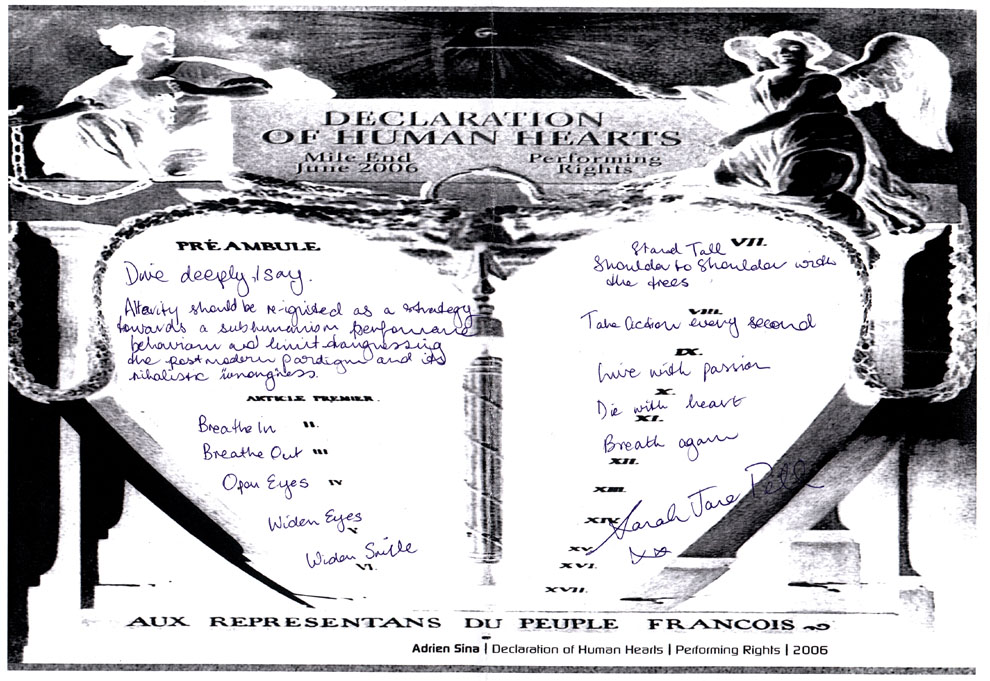 DECLARATION
OF HUMAN HEARTS
Mile End
June 2006
Performing
Rights
PRÉAMBULE
Dive deeply, I say.
Alterity should be re-ignited as a strategy
towards a subhumanism performance
behaviour and limit
the postmodern pardigm and its
nihalistic
ARTICLE PREMIER.
Breathe In II.
Breathe Out III
Open Eyes IV
Widen Eyes
V
Widen Smile
VI.
Stand Tall VII.
Shoulder to Shoulder with
the trees
VIII.
Take Action every second
IX.
Live with passion
X.
Die with heart
XI.
Breath again
XII.
XIII.
XIV.
Sarah Jane Pell
XV.
xx
XVI.
XVII.
AUX REPRESENTANS DU PEUPLE FRANCOIS
Adrien Sina | Declaration of Human Hearts | Performing Rights | 2006